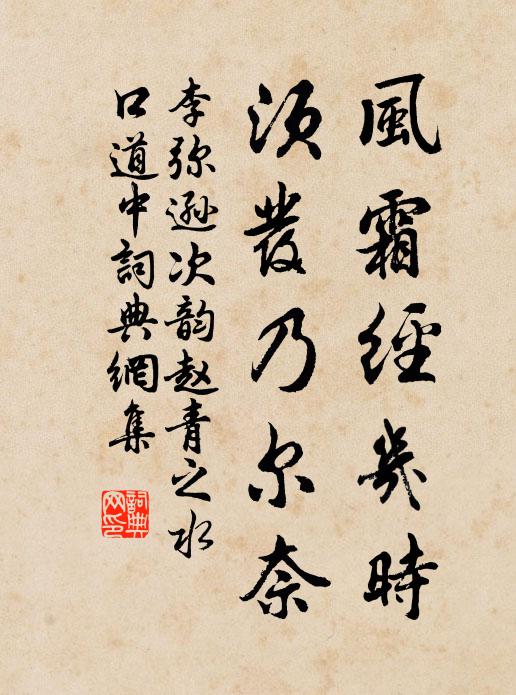 風霜經幾時
須發乃尔奈
李弥遜次韵赵青之水
口道中詞典網集
詞典
网印